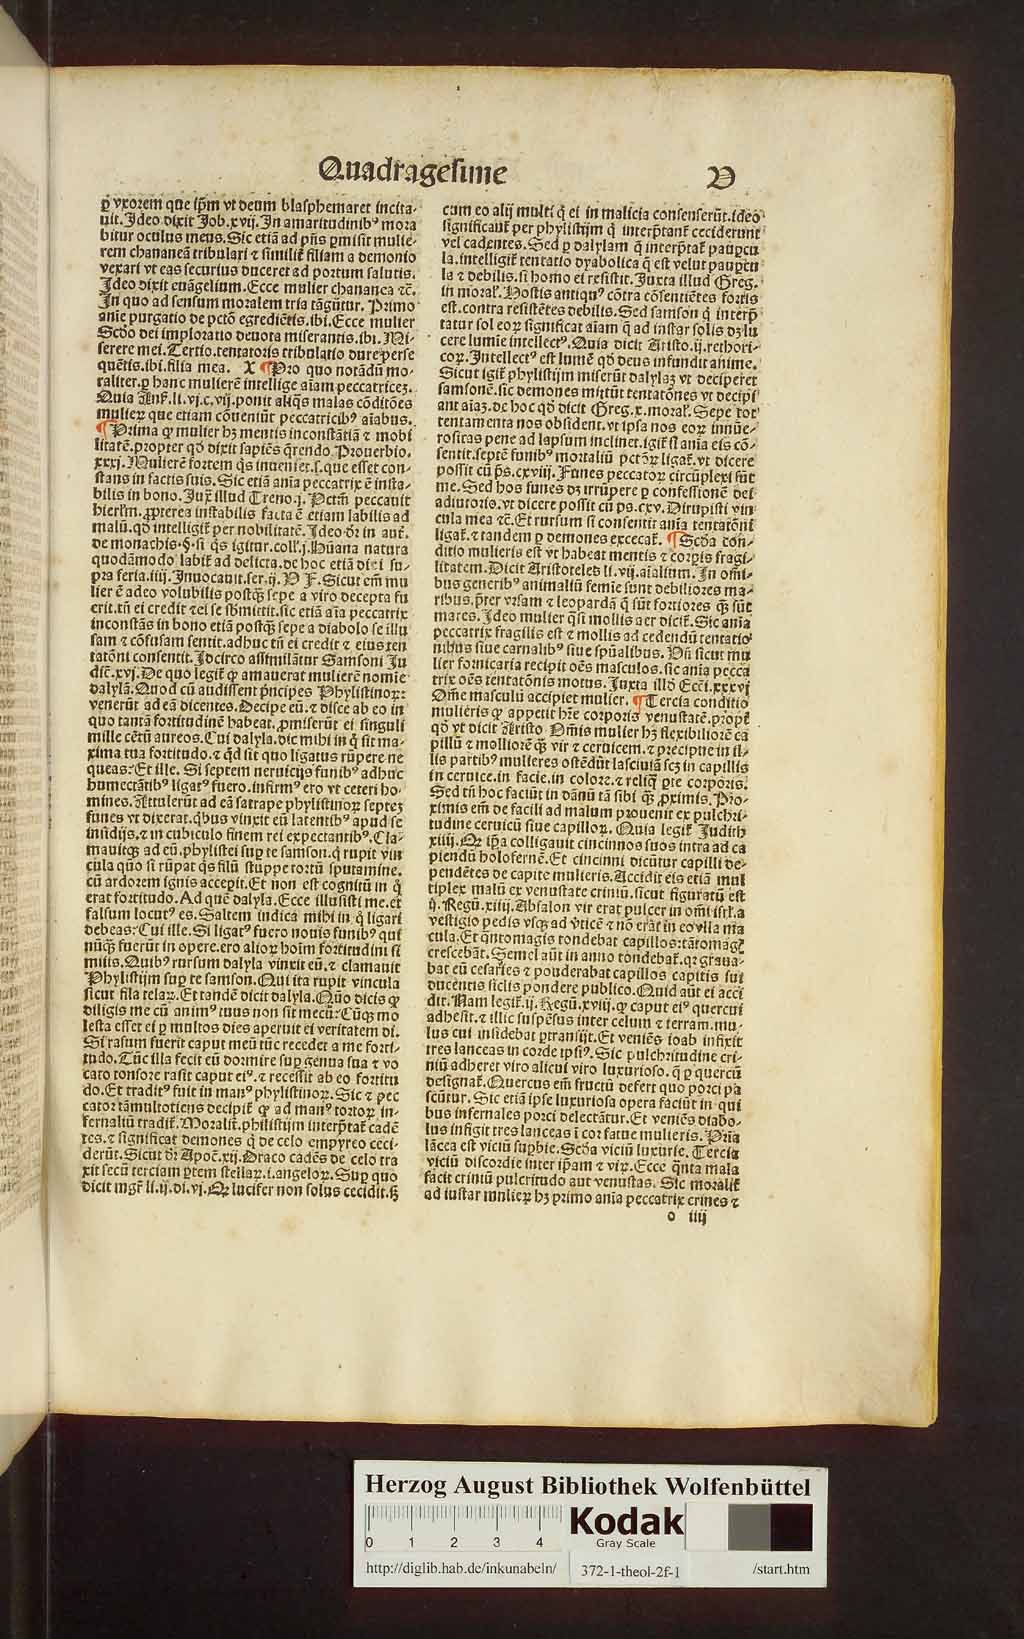 Quadragesime
V
ꝑ vxorem que ip̄m vt deum blasphemaret incita-
uit. Ideo dixit Job.xvij. In amaritudinibꝰ mora
bitur oculus meus. Sic etiā ad p̄ns ꝑmisit mulie-
rem chananeā tribulari ⁊ similiť filiam a demonio
vexari vt eas securius duceret ad portum salutis.
Ideo dixit euāgelium. Ecce mulier chananea ⁊c̄.
In quo ad sensum moralem tria tāgūtur. Primo
anīe purgatio de pctō egrediētis.ibi. Ecce mulier
Scd̄o dei imploratio deuota miserantis.ibi. Mi-
serere mei. Tertio.tentatoris tribulatio dure perse
quētis.ibi.filia mea. X ¶Pro quo notādū mo-
raliter.ꝑ hanc mulierē intellige aīam peccatricez.
Quia Ans̄.li.vj.c.vij.ponit aliq̄s malas cōditōes
mulieꝝ que etiam cōueniūt peccatricibꝰ aīabus.
¶Prima ꝙ mulier hꝫ mentis inconstātiā ⁊ mobi
litatē.propter qd̄ dixit sapiēs q̄rendo Prouerbio.
xxxj. Mulierē fortem q̄s inueniet.s.que esset con-
stans in factis suis. Sic etiā anīa peccatrix ē insta-
bilis in bono. Jux̄ illud Treno.j. Pctm̄ peccauit
hierl̄m.ꝓpterea instabilis facta ē etiam labilis ad
malū.qd̄ intelligiť per nobilitatē. Ideo dr̄ in aut̄.
de monachis.§.si q̄s igitur.coll̄.j. Hūana natura
quodāmodo labiť ad delicta.de hoc etiā dici su-
pra feria.iiij. Inuocauit.ser.ij. P F. Sicut em̄ mu
lier ē adeo volubilis postq̄ꝫ sepe a viro decepta fu
erit.tn̄ ei credit ⁊ ei se sb̄mittit.sic etiā aīa peccatrix
inconstās in bono etiā postq̄ꝫ sepe a diabolo se illu
sam ⁊ cōfusam sentit.adhuc tn̄ ei credit ⁊ eius ten
tatōni consentit. Idcirco assimilātur Samsoni Ju
dic̄.xvj. De quo legiť ꝙ amauerat mulierē nomīe
dalylā. Quod cū audissent p̄ncipes Phylistinoꝝ:
venerūt ad eā dicentes. Decipe eū.⁊ disce ab eo in
quo tantā fortitudinē habeat.ꝓmiserūt ei singuli
mille cētū aureos. Cui dalyla.dic mihi in q̄ sit ma-
xima tua fortitudo.⁊ q̄d sit quo ligatus rūpere ne
queas: Et ille. Si septem neruicijs funibꝰ adhuc
humectātibꝰ ligatꝰ fuero.infirmꝰ ero vt ceteri ho-
mines. Attulerūt ad eā satrape phylistinoꝝ septez
funes vt dixerat.q̄bus vinxit eū latentibꝰ apud se
insidijs.⁊ in cubiculo finem rei expectantibꝰ. Cla-
mauitqꝫ ad eū.phylistei suꝑ te samson.q̄ rupit vin
cula quō si rūpat q̄s filū stuppe tortū sputamine.
cū ardorem ignis accepit. Et non est cognitū in q̄
erat fortitudo. Ad quē dalyla. Ecce illusisti me.et
falsum locutꝰ es. Saltem indica mihi in q̄ ligari
debeas: Cui ille. Si ligatꝰ fuero nouis funibꝰ qui
nūq̄ꝫ fuerūt in opere.ero alioꝝ hoīm fortitudini si
milis. Quibꝰ rursum dalyla vinxit eū.⁊ clamauit
Phylistijm suꝑ te samson. Qui ita rupit vincula
sicut fila telaꝝ. Et tandē dicit dalyla. Quō dicis ꝙ
diligis me cū animꝰ tuus non sit mecū: Cūqꝫ mo
lesta esset ei ꝑ multos dies aperuit ei veritatem di.
Si rasum fuerit caput meū tūc recedet a me forti-
tudo. Tūc illa fecit eū dormire suꝑ genua sua ⁊ vo
cato tonsore rasit caput eiꝰ.⁊ recessit ab eo fortitu
do. Et traditꝰ fuit in manꝰ phylistinoꝝ. Sic ⁊ pec
cator tāmultotiens decipiť ꝙ ad manꝰ tortoꝝ in-
fernaliū tradiť. Moraliť.philistijm interp̄tať cadē
tes.⁊ significat demones q̄ de celo empyreo ceci-
derūt. Sicut dr̄ Apoc̄.xij. Draco cadēs de celo tra
xit secū terciam ꝑtem stellaꝝ.i.angeloꝝ. Suꝑ quo
dicit mgr̄ li.ij.di.vj. Qꝝ lucifer non solus cecidit.sꝫ
cum eo alij multi q̄ ei in malicia consenserūt.ideo
significanť per phylistijm q̄ interp̄tanť ceciderunt
vel cadentes. Sed ꝑ dalylam q̄ interp̄tať pauꝑcu
la.intelligiť tentatio dyabolica q̄ est velut pauꝑcu
la ⁊ debilis.si homo ei resistit. Juxta illud Greg.
in moral̄. Hostis antiquꝰ cōtra cōsentiētes fortis
est.contra resistētes debilis. Sed samson q̄ interp̄
tatur sol eoꝝ significat aīam q̄ ad instar solis dꝫ lu
cere lumīe intellectꝰ. Quia dicit Aristo.ij.rethori-
coꝝ. Intellectꝰ est lumē qd̄ deus infundit anime.
Sicut igiť phylistijm miserūt dalylaꝫ vt deciperet
samsonē.sic demones mittūt tentatōnes vt decipi
ant aīaꝫ.de hoc qd̄ dicit Greg.x.moral̄. Sepe tot
tentamenta nos obsident.vt ipsa nos eoꝝ innūe-
rositas pene ad lapsum inclinet.igiť si anīa eis cō-
sentit.septē funibꝰ mortaliū pctōꝝ ligať.vt dicere
possit cū p̄s.cxviij. Funes peccatoꝝ circūplexi sūt
me. Sed hos funes dꝫ irrūpere ꝑ confessionē dei
adiutoris.vt dicere possit cū ps.cxv. Dirupisti vin
cula mea ⁊c̄. Et rursum si consentit anīa tentatōni
ligať.⁊ tandem ꝑ demones excecať. ¶Scd̄a con-
ditio mulieris est vt habeat mentis ⁊ corꝑis fragi-
litatem. Dicit Aristoteles li.vij.aīalium. In om̄i-
bus generibꝰ animaliū femīe sunt debiliores ma-
ribus.p̄ter vrsam ⁊ leopardā q̄ sūt fortiores q̄ꝫ sūt
mares. Ideo mulier q̄si mollis aer diciť. Sic anīa
peccatrix fragilis est ⁊ mollis ad cedendū tentatio
nibus siue carnalibꝰ siue spūalibus. Vn̄ sicut mu
lier fornicaria recipit oēs masculos.sic anīa pecca
trix oēs tentatōnis motus. Juxta illd̄ Ecc̄i.xxxvj
Om̄e masculū accipiet mulier. ¶Tercia conditio
mulieris ꝙ appetit hr̄e corporis venustatē.propt̄
qd̄ vt dicit Aristo. Om̄is mulier hꝫ flexibiliorē ca
pillū ⁊ molliorē q̄ꝫ vir ⁊ ceruicem.⁊ precipue in il-
lis partibꝰ mulieres ostēdūt lasciuiā scꝫ in capillis
in ceruice.in facie.in colore.⁊ reliq̄ ꝑte corporis.
Sed tn̄ hoc faciūt in dānū tā sibi q̄ꝫ ꝓximis. Pro-
ximis em̄ de facili ad malum prouenit ex pulchri-
tudine ceruicū siue capilloꝝ. Quia legiť Judith
xiiij. Qꝝ ip̄a colligauit cincinnos suos intra ad ca
piendū holofernē. Et cincinni dicūtur capilli de-
pendētes de capite mulieris. Accidit eis etiā mul
tiplex malū ex venustate criniū.sicut figuratū est
ij. Regū.xiiij. Absalon vir erat pulcer in om̄i isrl̄.a
vestigio pedis vsqꝫ ad v̄ticē ⁊ nō erat in eo vlla ma
cula. Et q̄ntomagis tondebat capillos:tātomagꝭ
crescebāt. Semel aūt in anno tondebať.qꝛ graua-
bat eū cesaries ⁊ ponderabat capillos capitis sui
ducentis siclis pondere publico. Quid aūt ei acci
dit. Nam legiť.ij. Regū.xviij.ꝙ caput eiꝰ quercui
adhesit.⁊ illic suspēsus inter celum ⁊ terram.mu-
lus cui insidebat ꝑtransijt. Et veniēs ioab infixit
tres lanceas in corde ipsiꝰ. Sic pulchritudine cri-
niū adheret viro alicui viro luxurioso.q̄ ꝑ quercū
designať. Quercus em̄ fructū defert quo porci pa
scūtur. Sic etiā ipse luxuriosa opera faciūt in qui
bus infernales porci delectātur. Et veniēs diabo-
lus infigit tres lanceas ī cor fatue mulieris. Prīa
lācea est viciū suꝑbie. Scd̄a viciū luxurie. Tercia
viciū discordie inter ip̄am ⁊ viꝝ. Ecce q̄nta mala
facit criniū pulcritudo aut venustas. Sic moraliť
ad instar mulieꝝ hꝫ primo anīa peccatrix crines ⁊
o iiij
Herzog August Bibliothek Wolfenbüttel
0 1 2 3 4
Kodak
Gray Scale
http://diglib.hab.de/inkunabeln/
372-1-theol-2f-1
/start.htm